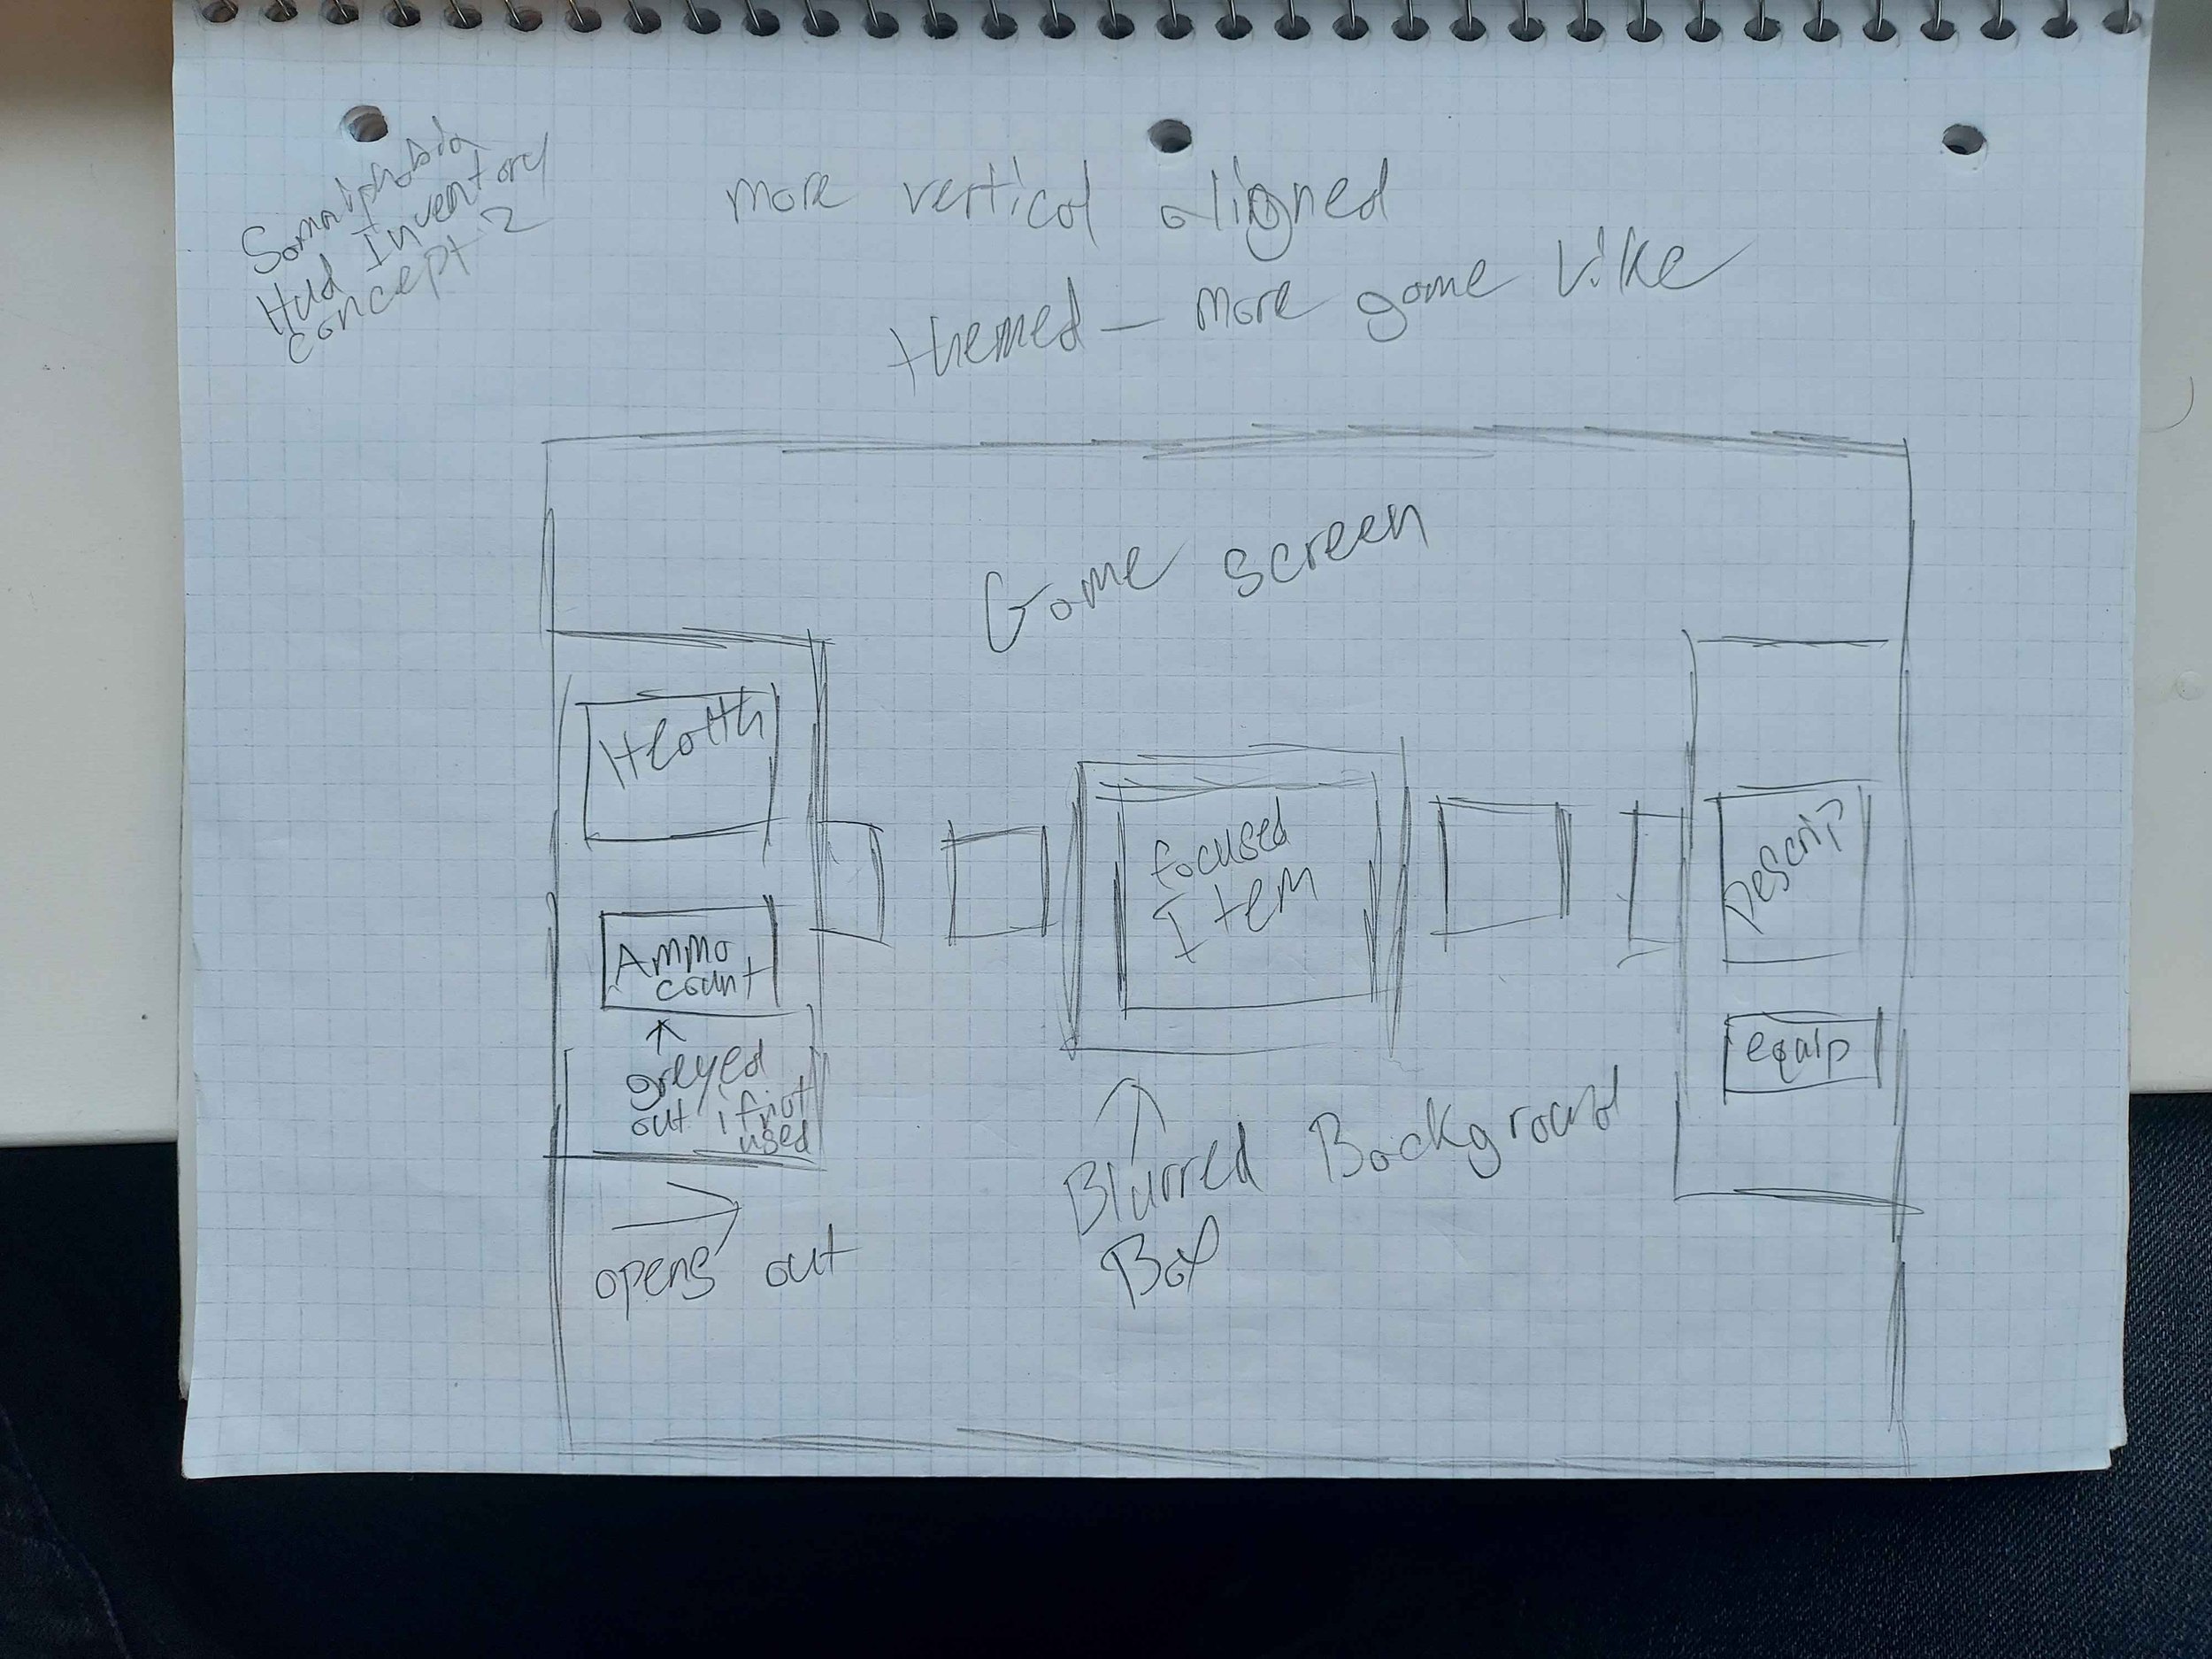 Somniphobia
Hud Inventory
concept 2
more vertical aligned
themed - more game like
Game screen
Health
Ammo
count
greyed
out if not
used
opens out
focused
Item
Blurred Background
Box
Descrip
equip